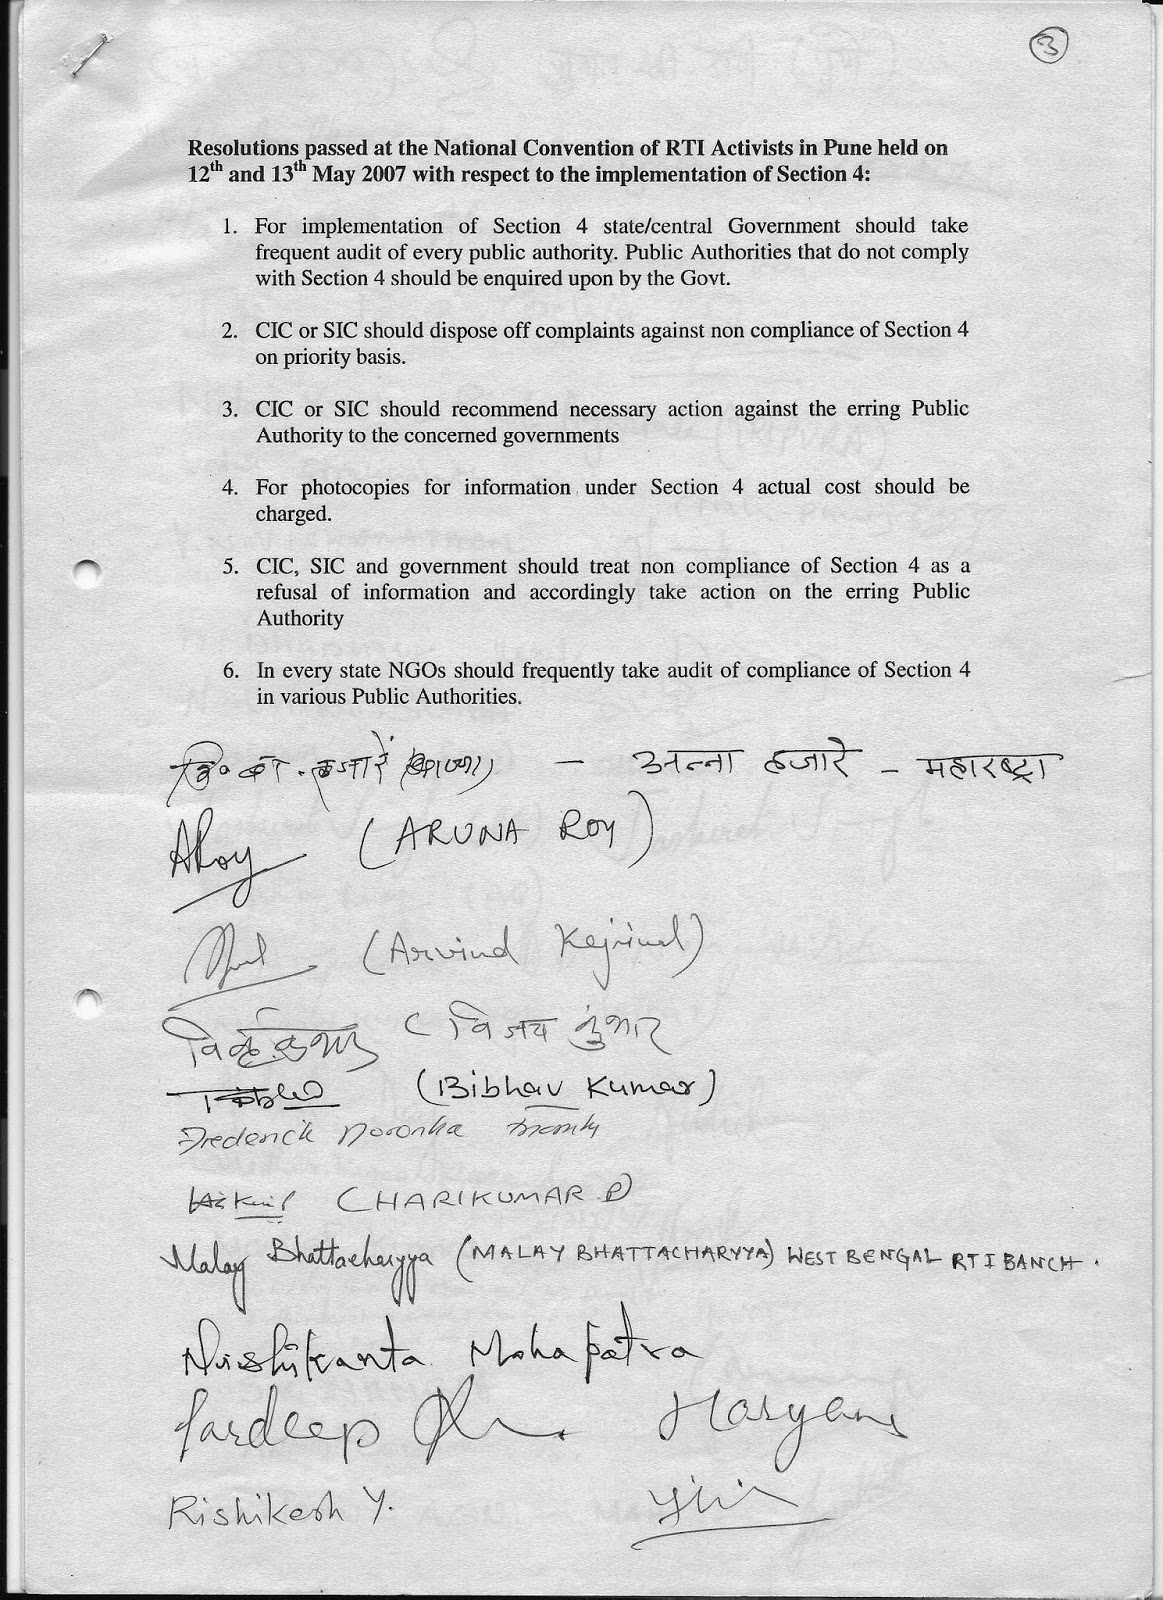 3
Resolutions passed at the National Convention of RTI Activists in Pune held on
12th and 13th May 2007 with respect to the implementation of Section 4:
1. For implementation of Section 4 state/central Government should take
frequent audit of every public authority. Public Authorities that do not comply
with Section 4 should be enquired upon by the Govt.
2. CIC or SIC should dispose off complaints against non compliance of Section 4
on priority basis.
3. CIC or SIC should recommend necessary action against the erring Public
Authority to the concerned governments
4. For photocopies for information under Section 4 actual cost should be
charged.
5. CIC, SIC and government should treat non compliance of Section 4 as a
refusal of information and accordingly take action on the erring Public
Authority
6. In every state NGOs should frequently take audit of compliance of Section 4
in various Public Authorities.
हजारे – अन्ना हजारे – महाराष्ट्रा
ARoy (ARUNA ROY)
(Arvind Kejriwal)
(विजय कुंभार
(Bibhav Kumar)
Frederick Noronha
CHARIKUMAR P
Malay Bhattacharyya (MALAY BHATTACHARYYA) WEST BENGAL RTI BANCH .
Nishikanta Mohapatra
Pardeep Haryana
Rishikesh Y.